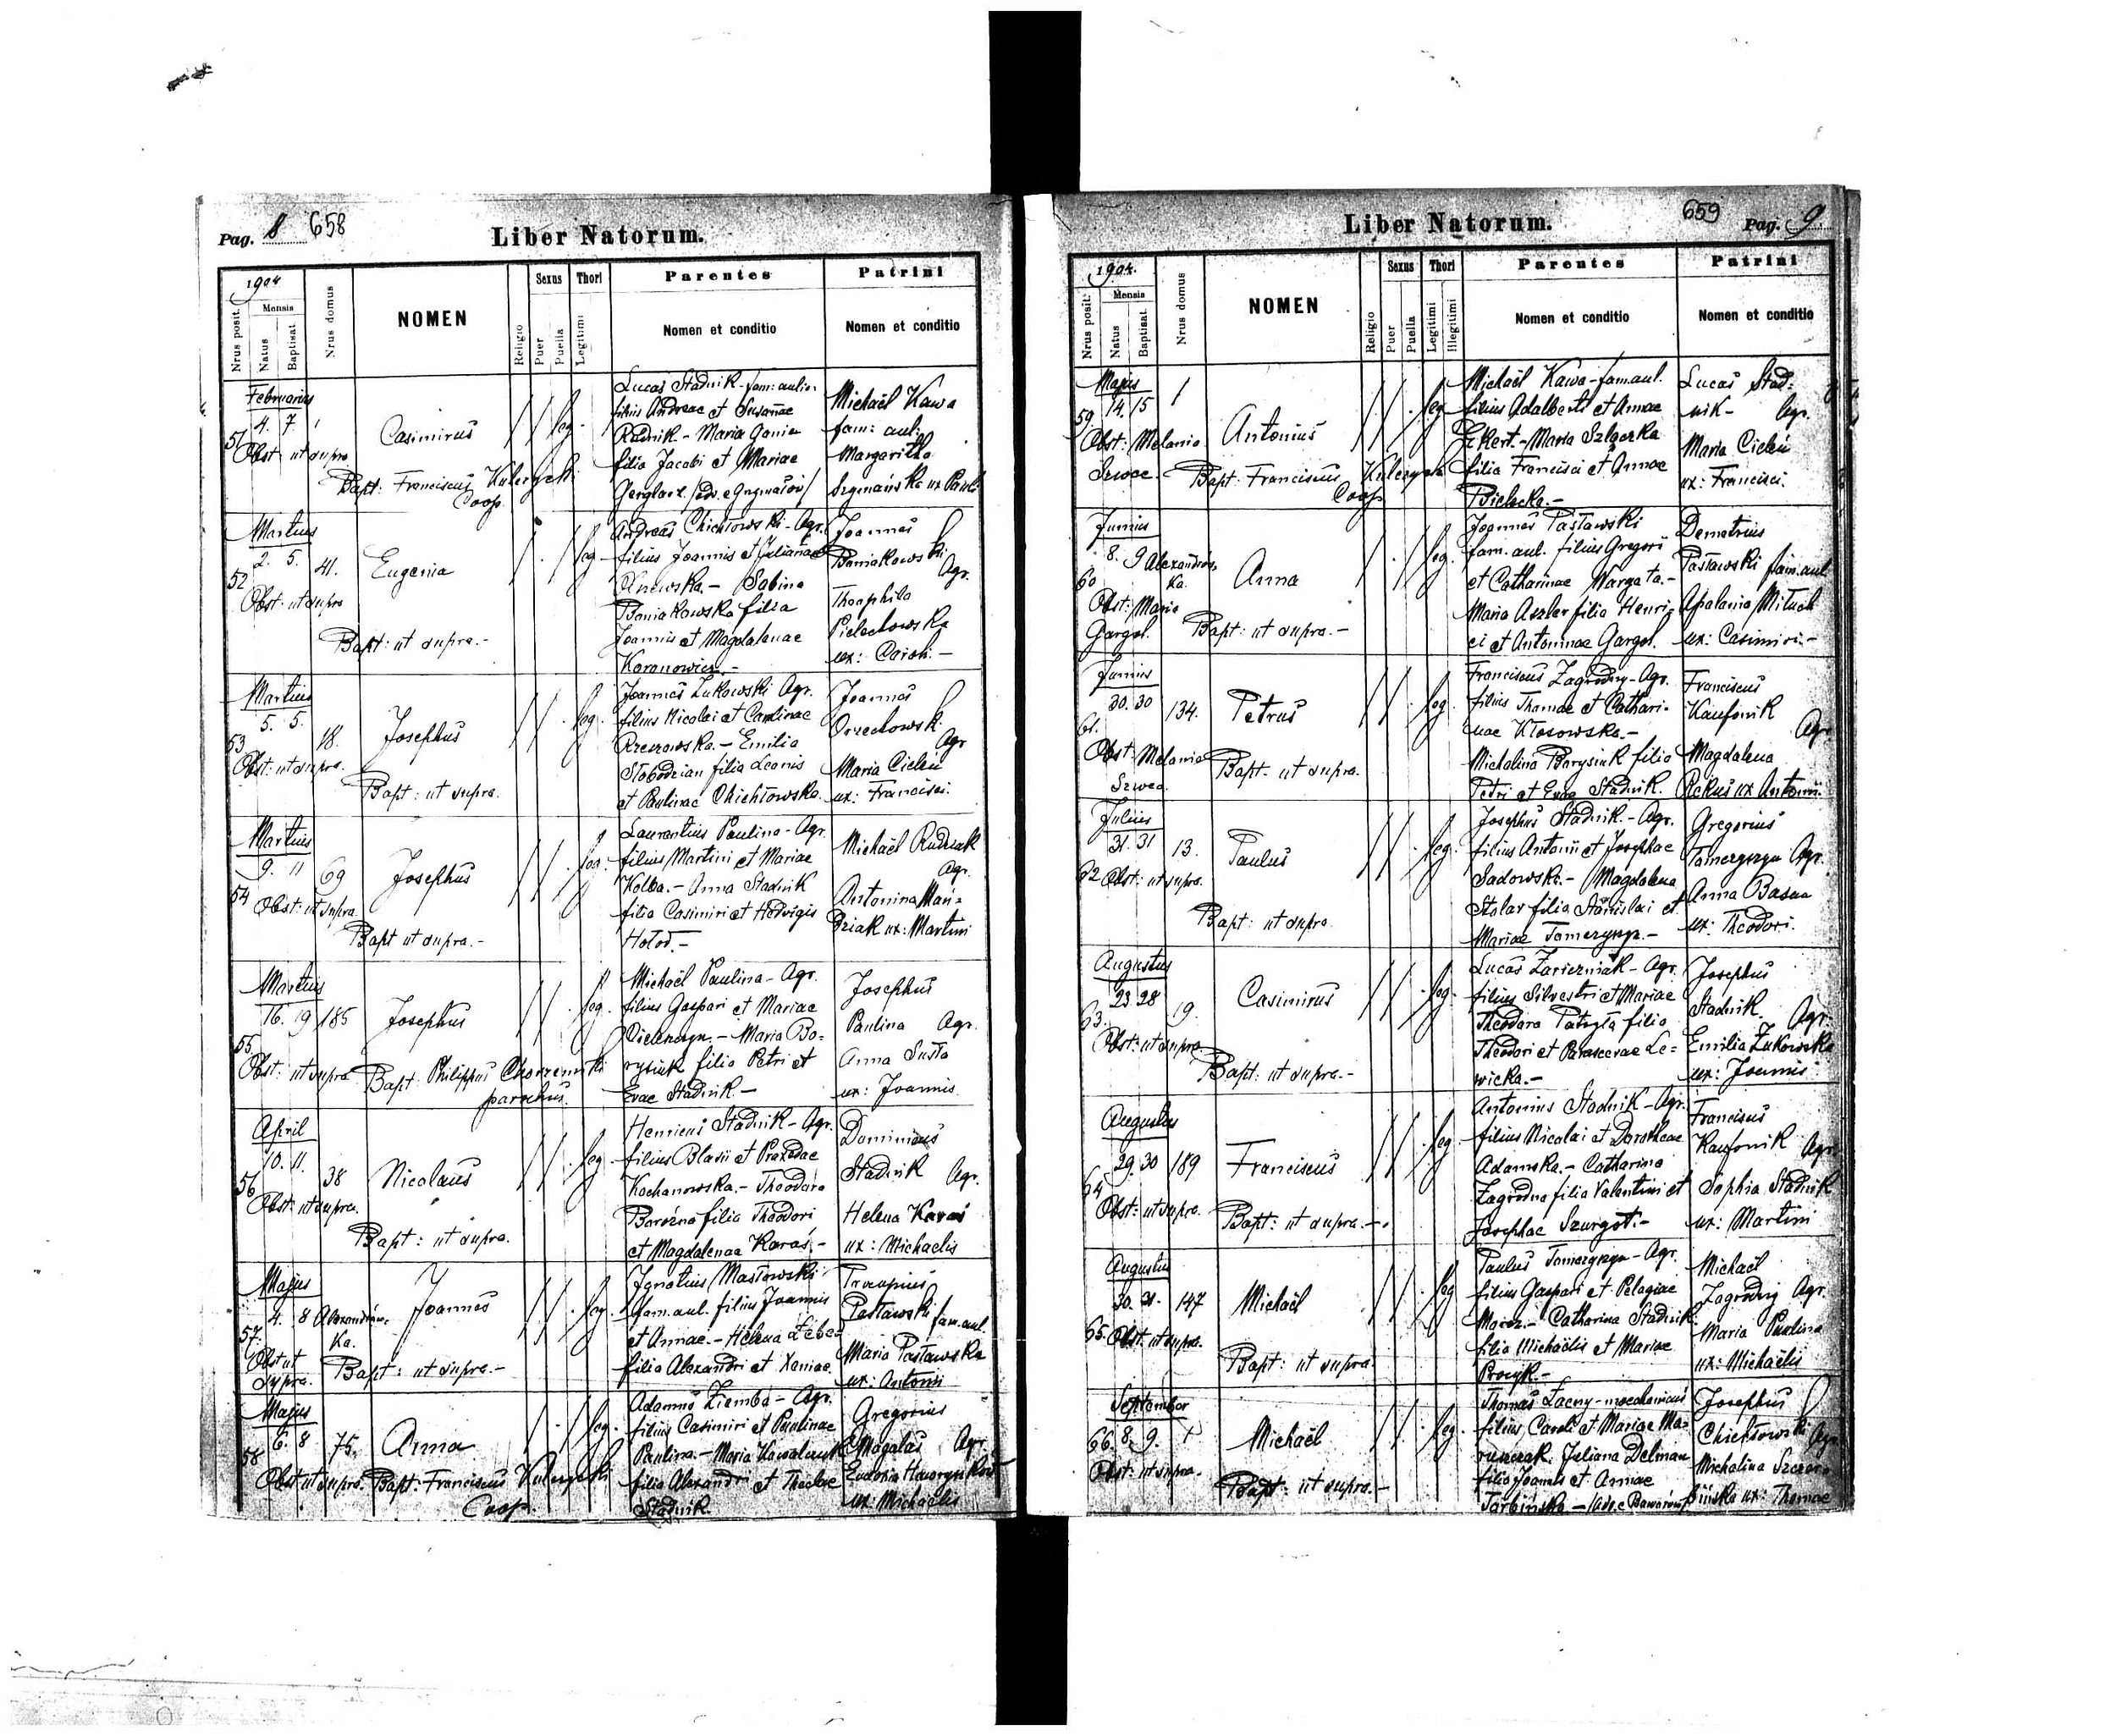 Pag. 8 658
Liber Natorum.
1904
Nrus posit.
Mensis
Natus
Baptisat.
Nrus domus
NOMEN
Religio
Sexus
Puer
Puella
Thori
Legitimi
Parentes
Nomen et conditio
Patrini
Nomen et conditio
51
Februarius
4. 7 1
Obst: ut supra
Casimirus
leg.
Bapt: Franciscus Kulczycki
Coop.
Lucas Stadnik - fam: aulic.
filius Andreae et Susannae
Rudnik - Maria
filia Jacobi et Mariae
Michaël Kawa
fam: aul:
Margaritha
Szymańska ux Pauli
52
Martius
2. 5. 41.
Obst: ut supra
Eugenia
leg.
Bapt: ut supra.-
Andreas Chichłowski - Agr.
filius Joannis et Julianae
Sabina
Baniakowska filia
Joannis et Magdalenae
Karanowicz.-
Joannes
Baniakowski
Agr.
Theophila
Pielechowska
ux: Caroli.-
53
Martius
5. 5. 18.
Obst: ut supra.
Josephus
leg.
Bapt: ut supra.
Joannes Żukowski Agr.
filius Nicolai et Paulinae
Emilia
Słobodzian filia Leonis
et Paulinae Chichłowska.
Joannes
Orzechowski
Agr
Maria Cieleń
ux: Francisci.
54
Martius
9. 11 69
Obst: ut supra
Josephus
leg.
Bapt ut supra.-
Laurentius Paulina - Agr.
filius Martini et Mariae
Kolba.- Anna Stadnik
filia Casimiri et Hedvigis
Hołod.-
Michaël Rudziak
Agr.
Antonina Mań-
dziak ux: Martini
55
Martius
16. 19 185
Obst: ut supra
Josephus
leg.
Bapt: Philippus
parochus.
Michaël Paulina - Agr.
filius Gaspari et Mariae
Maria Bo-
rysiuk filia Petri et
Evae Stadnik.-
Josephus
Paulina Agr.
Anna Susła
ux: Joannis.
56
April
10. 11. 38
Obst: ut supra.
Nicolaus
leg.
Bapt: ut supra.
Henricus Stadnik - Agr.
filius Blasii et Praxedae
Kochanowska.- Theodora
Barózna filia Theodori
et Magdalenae Karaś.-
Dominicus
Stadnik Agr.
Helena Karaś
ux: Michaelis
57.
Majus
4. 8 Alexandrów-
ka.
Obst ut
supra.
Joannes
leg.
Bapt: ut supra.-
Ignatius Masłowski
fam. aul. filius Joannis
et Annae.- Helena
filia Alexandri et Xeniae.
Procopius
Pastawski fam. aul.
Maria Pastawska
ux: Antoni
58
Majus
6. 8 75.
Obst: ut supra.
Anna
leg.
Bapt: Franciscus Kulczycki
Coop.
Adamus Ziemba - Agr.
filius Casimiri et Paulinae
Paulina.- Maria
filia Alexandri et Theclae
Stadnik.
Gregorius
Magalas Agr.
Eudoxia
ux: Michaelis
Liber Natorum.
659 Pag. 9
1904.
Nrus posit.
Mensis
Natus
Baptisat.
Nrus domus
NOMEN
Religio
Sexus
Puer
Puella
Thori
Legitimi
Illegitimi
Parentes
Nomen et conditio
Patrini
Nomen et conditio
59.
Majus
14. 15 1
Obst: Melania
Szwec.
Antonius
leg
Bapt: Franciscus Kulczycki
Coop
Michaël Kawa - fam. aul.
filius Adalberti et Annae
Ekert.- Maria
filia Francisci et Annae
Bielecka.-
Lucas Stad-
nik - Agr.
Maria Cieleń
ux: Francisci.
60
Junius
8. 9 Alexandrów-
ka.
Obst: Maria
Gargol.
Anna
leg.
Bapt: ut supra.-
Joannes Pastawski
fam. aul. filius Gregorii
et Catharinae Wargata.-
Maria Aszler filia Henri-
ci et Antoninae Gargol.
Demetrius
Pastawski fam. aul
Apolonia
ux: Casimiri.-
61.
Junius
30. 30 134.
Obst: Melania
Szwec.
Petrus
leg.
Bapt. ut supra.
Franciscus Zagrodny - Agr.
filius Thomae et Cathari-
nae Kłosowska.-
Michalina Borysiuk filia
Petri et Evae Stadnik.
Franciscus
Kaufonik
Agr
Magdalena
ux Antonii.
62
Julius
31. 31 13.
Obst: ut supra.
Paulus
leg.
Bapt: ut supra.
Josephus Stadnik.- Agr.
filius Antonii et Josephae
Sadowska.- Magdalena
Stolar filia Stanislai et
Mariae
Gregorius
Agr.
Anna
ux: Theodori.
63.
Augustus
23. 28 19.
Obst: ut supra
Casimirus
leg.
Bapt: ut supra.-
Lucas - Agr.
filius Silvestri et Mariae
Theodora filia
Theodori et Parascevae Le-
wicka.-
Josephus
Stadnik
Agr.
Emilia Żukowska
ux: Joannis
64
Augustus
29. 30 189
Obst: ut supra.
Franciscus
leg
Bapt: ut supra.-
Antonius Stadnik - Agr.
filius Nicolai et Dorotheae
Adamska.- Catharina
Zagrodna filia Valentini et
Josephae Szurgot.-
Franciscus
Kaufonik Agr.
Sophia Stadnik
ux: Martini
65.
Augustus
30. 31. 147
Obst: ut supra.
Michaël
leg
Bapt: ut supra
Paulus - Agr.
filius Gaspari et Pelagiae
Catharina Stadnik
filia Michaëlis et Mariae
Procyk.-
Michaël
Zagrodny Agr.
Maria Paulina
ux: Michaëlis
66.
September
8. 9. 1
Obst: ut supra.
Michaël
leg.
Bapt: ut supra.-
Thomas Łacny - mechanicus
filius Caroli et Mariae
Juliana Delman
filia Joannis et Annae
Josephus
Chichłowski Agr
Michalina
ux: Thomae